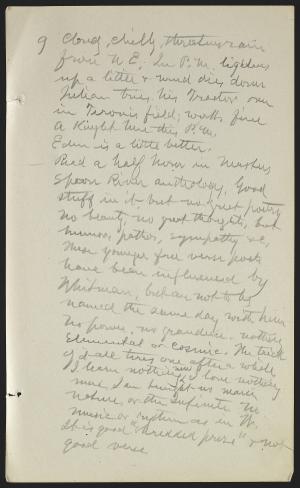 9 Cloud, chilly, threatens rain
from N E. In P.M. lightens
up a little & wind dies down
Julian tries his Tractor over
in Terovis field; works fine
A Knight here this P.M.
Eden is a little better.
Read a half hour in Masters
Spoon River anthology, Good
stuff in it but no great poetry
no beauty no great thoughts, but
humor, pathos, sympathy &c,
These younger free verse poets
have been influenced by
Whitman, but are not to be
named the same day with him
No power, no grandeur, nothing
Elemental or cosmic. The trick
of it all tires one after a while
I learn nothing and love nothing
more, I am brought no nearer
nature, or the infinite No
music or rythm as in W.
It is good "shredded prose" & not
good verse